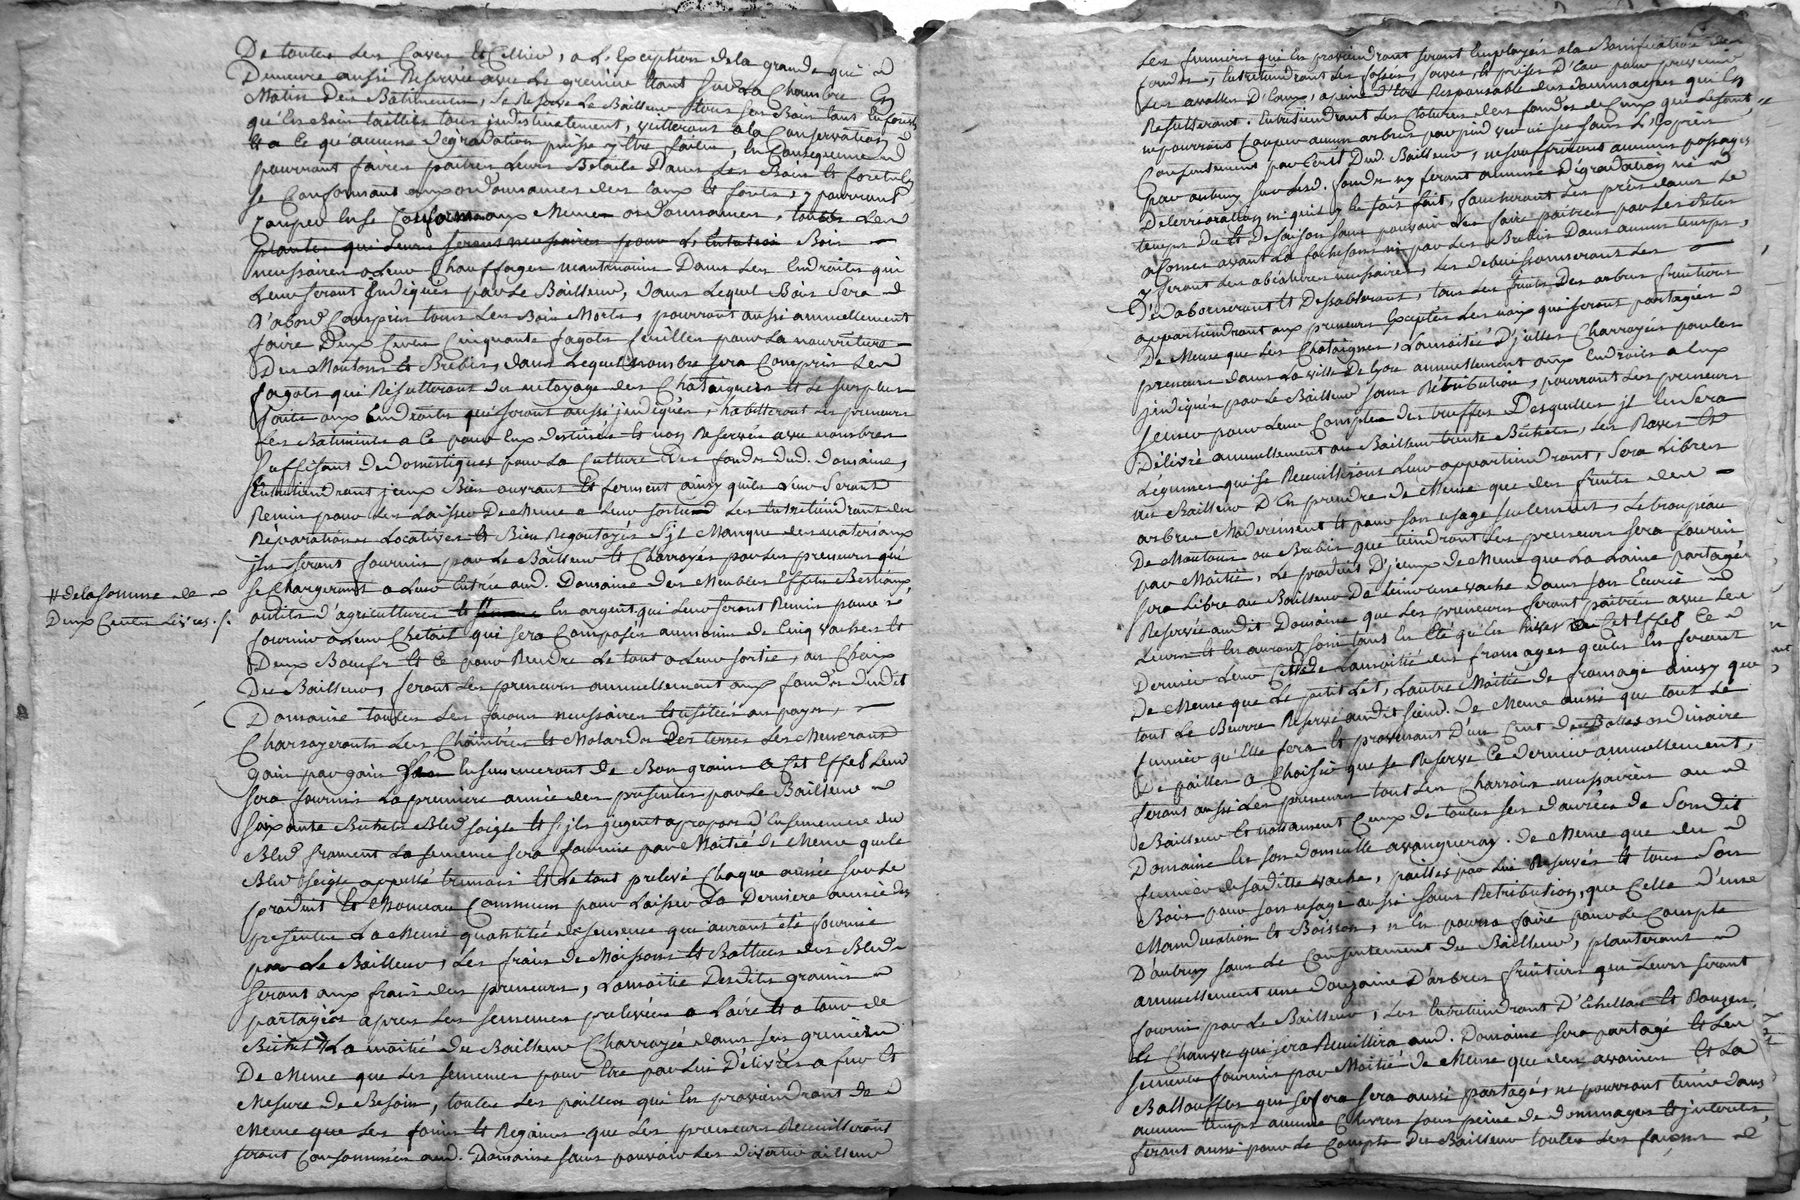 De toutes Les Caves Et Cellier, a L'Exception dela grande qui
Demeure aussi Reservée avec Le grenier Etant sur La Chambre En
Matin Des Batiments, se Reserve Le Bailleur tous ses Bois tant En forest
qu'En Bois taillies tous indistinctement, veilleront ala Conservation
Et a Ce qu'aucune Dégradation puisse y Etre faitte, En Consequence
pourront faires paitres Leurs Betails Dans Les Bois Et forets En
se Conformant aux ordonnances des Eaux Et forets, y pourront
Couper En se Conformant aux Memes ordonnances, tous Les
plantes qui Leurs seront necessaires pour L'Entretien Bois
necessaires a Leur Chauffages neantmoins Dans Les Endroits qui
Leur seront Indiqués par Le Bailleur, dans Lequel Bois sera
D'abord Compris tous Les Bois Morts, pourront aussi annuellement
faire Deux Cents Cinquante fagots feuilles pour La nourriture
Des Moutons Et Brebis, dans Lequel nombre sera Compris Les
fagots qui Resulteront du netoyage des Chataigniers Et Le surplus
faits aux Endroits qui seront aussi indiqués, habitteront Les preneurs
Les Batiments a Ce pour Eux destinés Et non Reservés avec nombre
suffisant de domestiques pour La Culture des fonds dud. Domaine,
Entretiendront jceux Bien ouvrant Et ferment ainsy qu'ils Leur seront
Remis pour Les Laisser De Meme a Leur sortie Les Entretiendront des
Réparations Locatives Et Bien Regoutoyés S'jl Manque des materiaux
jls seront fournis par Le Bailleur Et Charroyés par Les preneurs qui
se Chargeront a Leur Entrée aud. Domaine des Meubles Effets Bestiaux
outils d'agriculture Et En argent qui Leur seront Remis pour
# dela somme de
Deux Cents Livres ./.
fournir a Leur Chetail qui sera Composés aumoins de Cinq vaches Et
Deux Boeufs Et Ce pour Rendre Le tout a Leur sortie, au Choix
Du Bailleur, feront Les preneurs annuellement aux fonds dudit
Domaine toutes Les facons necessaires Et usitées au payes,
Charroyeronts Les Chaintres Et Molards Des terres Les Meneronts
gain par gain Ensemenceront de Bon grains a Cet Effet Leur
sera fournis La premiere année des presentes par Le Bailleur
soixante Bichets Bled soigle Et S'jls jugent apropos d'Ensemencer du
Bled froment La semence sera fournie par Moitié de Meme que Le
Bled soigle appellé tremois Et Le tout prelevé Chaque année sur Le
produit Et Monceau Commun pour Laisser La Derniere année des
presentes La Meme quantitée de semence qui auront été fournie
par Le Bailleur, Les frais de Moissons Et Battures des Bleds
seront aux frais des preneurs, Lamoitié Desdits grains
partagées apres Les semences prelevées a L'aire Et a tour de
Bichet Et La moitié du Bailleur Charroyée dans ses greniers
De Meme que Les semences pour Etre par Lui Délivrés a fur Et
Mesure de Besoin, toutes Les pailles qui En proviendront de
Meme que Les foins Et Regains que Les preneurs Recueilleront
seront Consommées aud. Domaine sans pouvoir Les divertir ailleurs
Les fumiers qui En proviendront seront Employées ala Bonnification des
fonds, Entretiendront Les fossés, serves Et prises D'Eau pour prevenir
Les avalles D'Eaux, apeine d'Etre Responsable des dommages qui En
Resulteront. Entretiendront Les Clotures des fonds de Ceux qui Le sont,
ne pourront Couper aucun arbres par pied vif ni sec sans L'Exprès
Consentement par Ecrit Dud. Bailleur, ne souffriront aucuns passages
par autruy sur Lesd. fonds n'y feront aucune Dégradation ne
Détérioration ni qu'il y En soit fait, faucheront Les prés dans Le
temps Du Et De saison sans pouvoir Les faire paitres par Les Betes
a Cornes avant La fauchaison ni par Les Brebis Dans aucun temps,
y feront Les abéalures necessaires, Les debuissonneront Les
D'ÉtabornerontEt Dessableront, tous Les fruits Des arbres fruitiers
appartiendront aux preneurs Exceptés Les noix qui seront partagées
De Meme que Les Chataignes, Lamoitié D'jcelles Charroyés par Les
preneurs dans La ville de Lyon annuellement aux Endroits a Eux
jndiqués par Le Bailleur sans Rétribution, pourront Les preneurs
semer pour Leur Compte des truffes Desquelles jl En sera
Délivré annuellement au Bailleur trente Bichets, Les Raves Et
Légumes qui se Recueilleront Leur appartiendront, sera Libres
au Bailleur D'En prendre de Meme que des fruits des
arbres Moderément Et pour son usage seulement, Le troupeau
De Moutons ou Brebis que tiendront Les preneurs sera fournis
par Moitié, Le produit D'jceux de Meme que La Laine partagée
sera Libre au Bailleur De tenir une vache dans son Ecurie
Reservée audit Domaine que Les preneurs feront paitres avec Les
Leurs Et En auront soin tant En Eté qu'En hiver a Cet Effet Ce
Dernier Leur Cedde Lamoitié des fromages qu'ils En feront
De Meme que Le petit Let, L'autre Moitié de fromage ainsy que
tout Le Beurre Reservé audit sieur de Meme aussi que tout Le
fumier qu'Elle fera Et provenant D'un Cent de Bottes ordinaire
De pailles a Choisir que se Reserve Ce dernier annuellement,
feront aussi Les preneurs tout Les Charrois necessaires au
Bailleur Et notamment Ceux de toutes ses danrées de Sondit
Domaine En son domicille avaugneray. de Meme que du
fumier de saditte vache, pailles par Lui Reservés Et tous Son
Bois pour son usage aussi sans Retribution, que Celle d'une
Manducation Et Boisson, n'En pourra faire pour Le Compte
D'autruy sans Le Consentement du Bailleur, planteront
annuellement une douzaine D'arbres fruitiers qui Leurs seront
fourni par Le Bailleur, Les Entretiendront D'Ehellas Et Ronzes,
Le Chanvre qui sera Receuillira aud. Domaine sera partagé Et Les
semences fournies par Moitié de Meme que des avoines Et La
Ballouffes qui se fera sera aussi partagé, ne pourront tenir dans
aucun temps aucune Chevres sous peine de dommages Et jnterets,
feront aussi pour Le Compte du Bailleur toutes Les facons